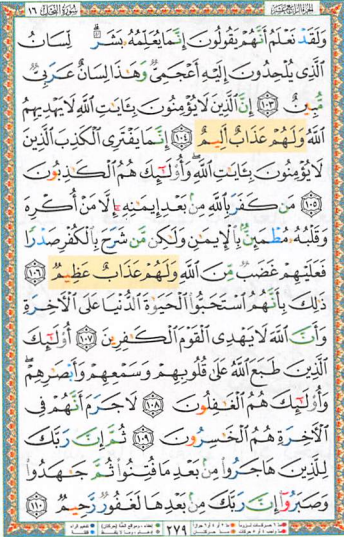 الجزء الرابع عشر ١٦ سورة النحل
وَلَقَدْ نَعْلَمُ أَنَّهُمْ يَقُولُونَ إِنَّمَا يُعَلِّمُهُۥ بَشَرٌۗ لِّسَانُ
ٱلَّذِى يُلْحِدُونَ إِلَيْهِ أَعْجَمِىٌّ وَهَٰذَا لِسَانٌ عَرَبِىٌّ
مُّبِينٌ ١٠٣ إِنَّ ٱلَّذِينَ لَا يُؤْمِنُونَ بِـَٔايَٰتِ ٱللَّهِ لَا يَهْدِيهِمُ
ٱللَّهُ وَلَهُمْ عَذَابٌ أَلِيمٌ ١٠٤ إِنَّمَا يَفْتَرِى ٱلْكَذِبَ ٱلَّذِينَ
لَا يُؤْمِنُونَ بِـَٔايَٰتِ ٱللَّهِۖ وَأُو۟لَٰٓئِكَ هُمُ ٱلْكَٰذِبُونَ
١٠٥ مَن كَفَرَ بِٱللَّهِ مِنۢ بَعْدِ إِيمَٰنِهِۦٓ إِلَّا مَنْ أُكْرِهَ
وَقَلْبُهُۥ مُطْمَئِنٌّۢ بِٱلْإِيمَٰنِ وَلَٰكِن مَّن شَرَحَ بِٱلْكُفْرِ صَدْرًا
فَعَلَيْهِمْ غَضَبٌ مِّنَ ٱللَّهِ وَلَهُمْ عَذَابٌ عَظِيمٌ ١٠٦
ذَٰلِكَ بِأَنَّهُمُ ٱسْتَحَبُّوا۟ ٱلْحَيَوٰةَ ٱلدُّنْيَا عَلَى ٱلْـَٔاخِرَةِ
وَأَنَّ ٱللَّهَ لَا يَهْدِى ٱلْقَوْمَ ٱلْكَٰفِرِينَ ١٠٧ أُو۟لَٰٓئِكَ
ٱلَّذِينَ طَبَعَ ٱللَّهُ عَلَىٰ قُلُوبِهِمْ وَسَمْعِهِمْ وَأَبْصَٰرِهِمْۖ
وَأُو۟لَٰٓئِكَ هُمُ ٱلْغَٰفِلُونَ ١٠٨ لَا جَرَمَ أَنَّهُمْ فِى
ٱلْـَٔاخِرَةِ هُمُ ٱلْخَٰسِرُونَ ١٠٩ ثُمَّ إِنَّ رَبَّكَ
لِلَّذِينَ هَاجَرُوا۟ مِنۢ بَعْدِ مَا فُتِنُوا۟ ثُمَّ جَٰهَدُوا۟
وَصَبَرُوٓا۟ إِنَّ رَبَّكَ مِنۢ بَعْدِهَا لَغَفُورٌ رَّحِيمٌ ١١٠
٢٧٩